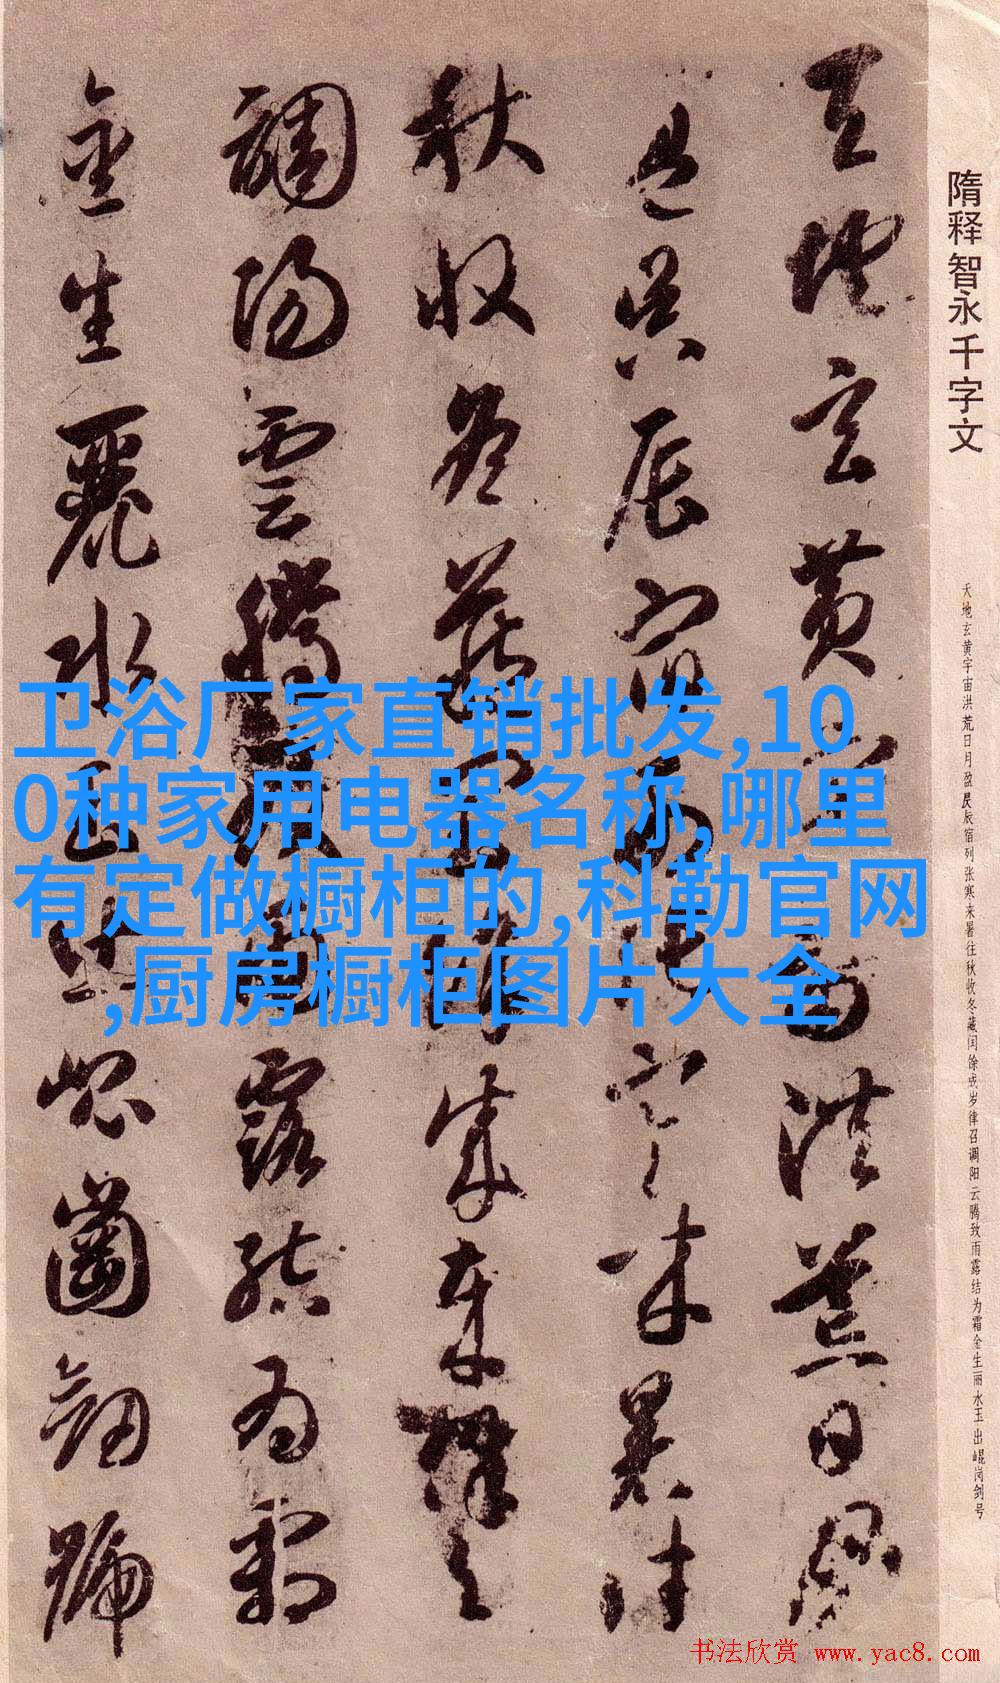 隋释智永千字文
天地玄黄宇宙洪荒日月盈昃辰宿列张寒来暑往秋收冬藏闰馀成岁律召调阳云腾致雨露结为霜金生丽水玉出崐岗剑号
天地玄黄宇宙洪荒日月
盈昃辰宿列張寒来暑往
秋收冬藏閏餘成歲律召
調陽雲騰致雨露結為霜
金生麗水玉出崐崗劒號
卫浴厂家直销批发,10
0种家用电器名称,哪里
有定做橱柜的,科勒官网
,厨房橱柜图片大全
书法欣赏 www.yac8.com